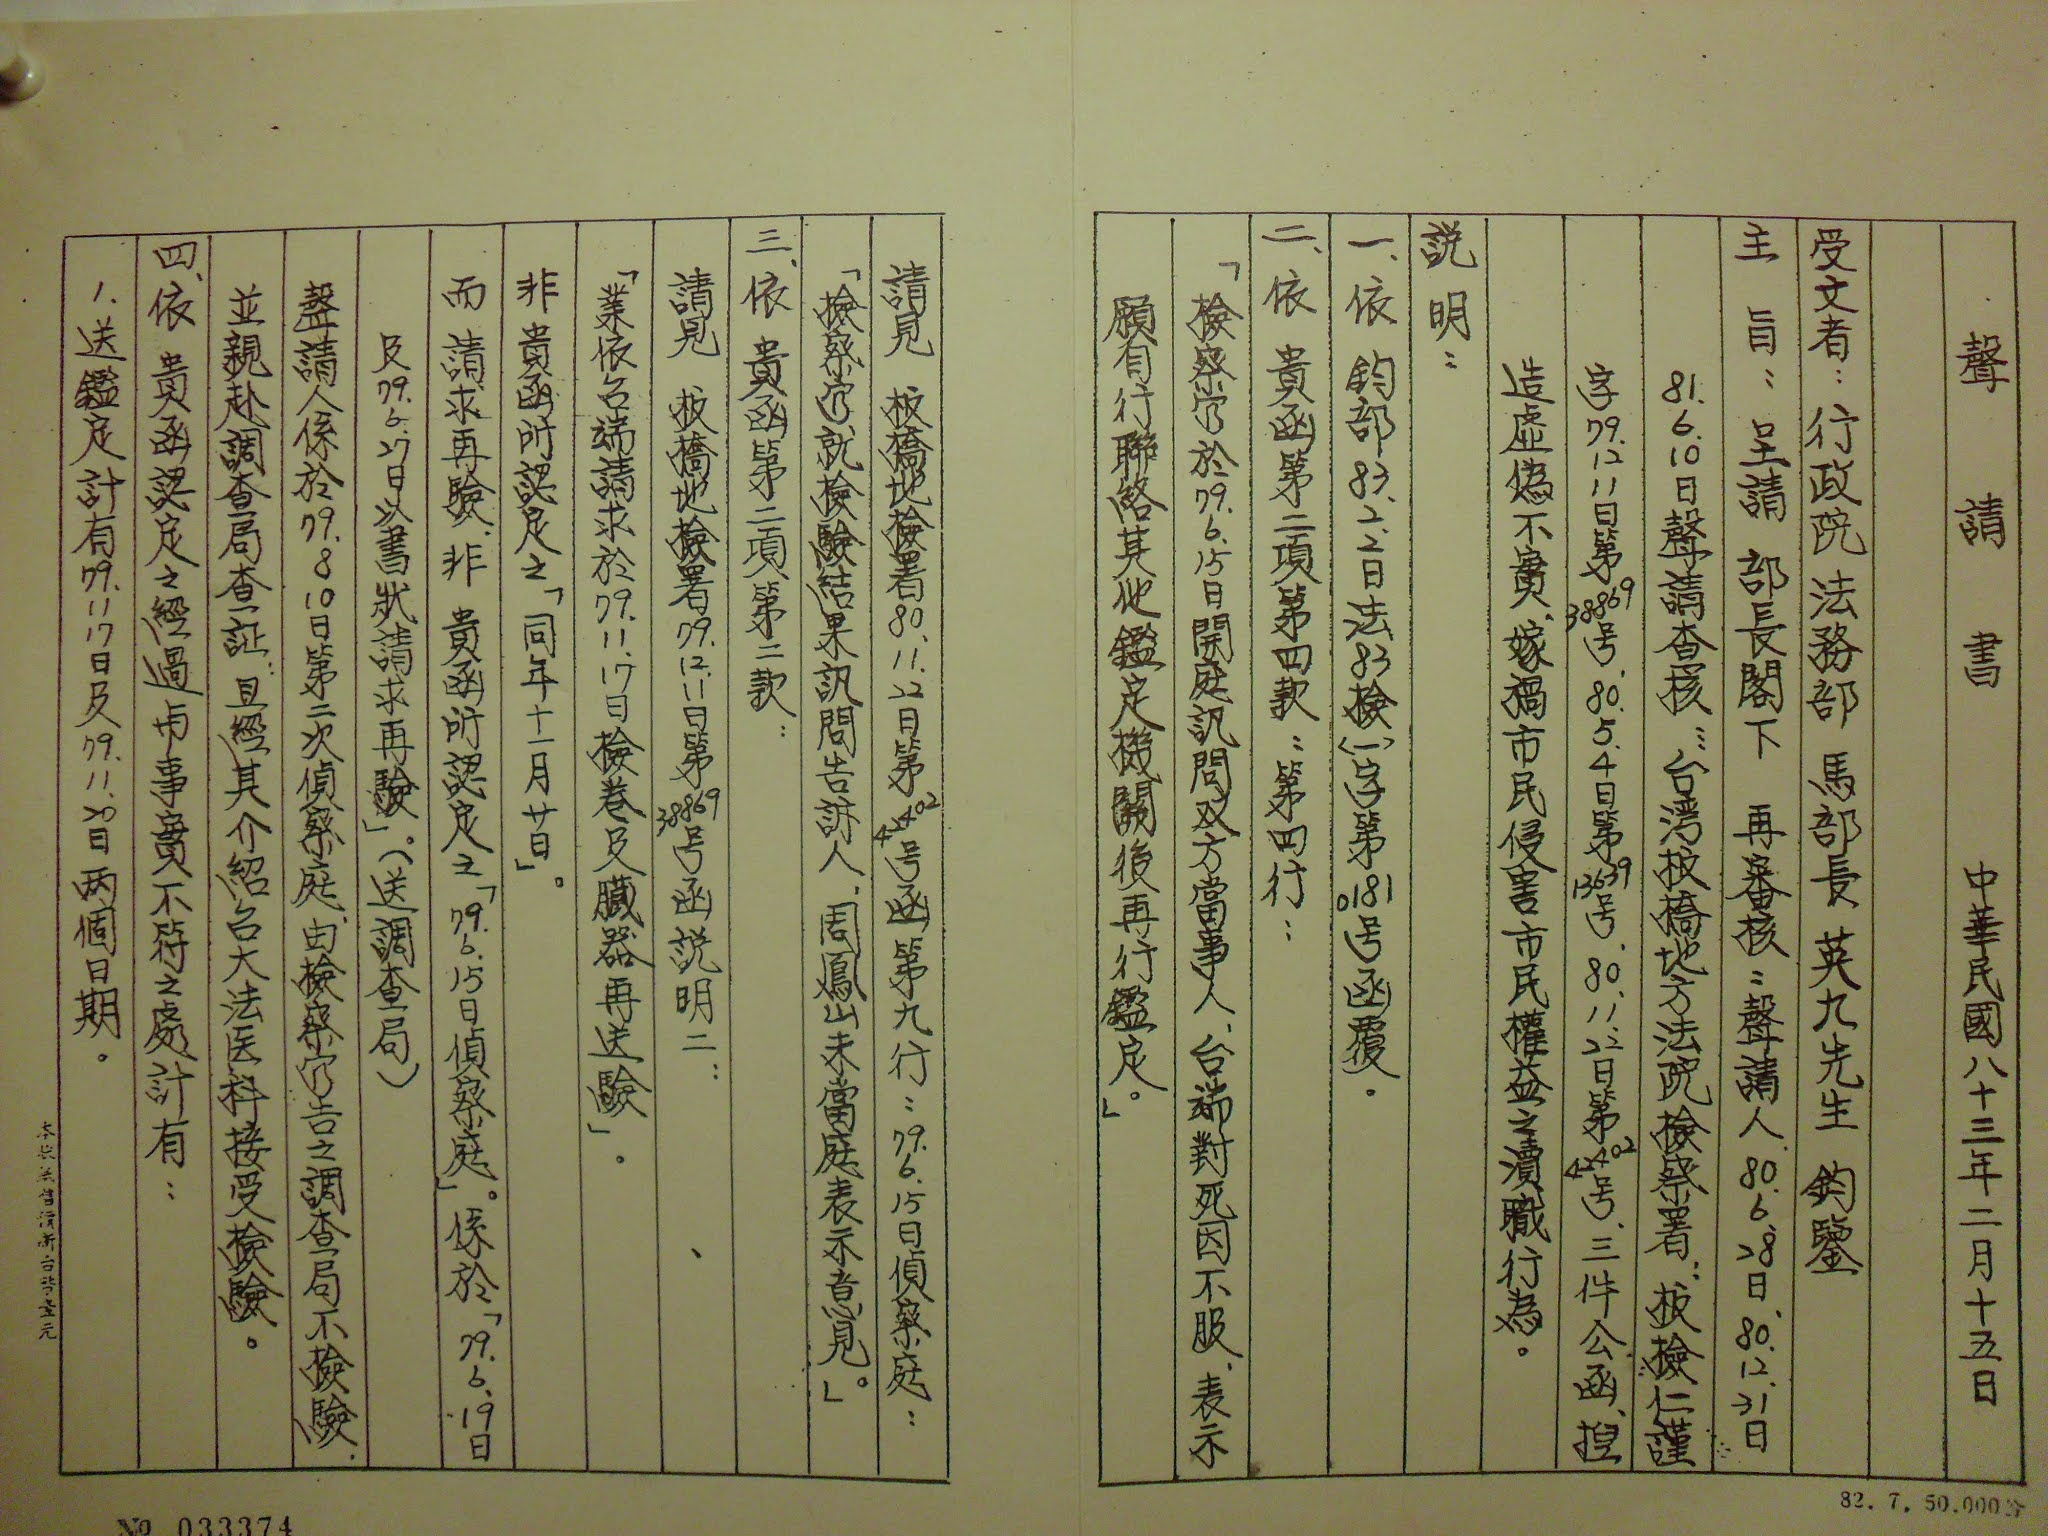 聲請書 中華民國八十三年二月十五日
受文者：行政院法務部 馬部長 英九先生 鈞鑒
主旨：呈請 部長閣下 再審核：聲請人80.6.28日、80.12.31日
81.6.10日聲請查核：台湾板橋地方法院檢察署：板檢仁謹
字79.12.11日第38869号、80.5.4日第13639号、80.11.22日第42402号、三件公函、揑
造虛偽不實、嫁禍市民侵害市民權益之瀆職行為。
説明：
一、依 鈞部83.2.2日法83檢(一)字第0181号函覆。
二、依 貴函第二項第四款：第四行：
「檢察官於79.6.15日開庭訊問双方當事人、台端對死因不服、表示
願有行聯絡其他鑑定機關後再行鑑定。」
請見 板橋地檢署80.11.22日第42402号函第九行：79.6.15日偵察庭：
「檢察官就檢驗結果訊問告訴人、周鳳山未當庭表示意見。」
三、依 貴函第二項第二款：
請見 板橋地檢署79.12.11日第38869号函説明二：
「業依台端請求於79.11.17日檢卷及臟器再送驗」。
非 貴函所認定之「同年十一月廿日」。
而請求再驗、非 貴函所認定之「79.6.15日偵察庭」。係於「79.6.19日
及79.6.27日以書狀請求再驗」。（送調查局）
聲請人係於79.8.10日第二次偵察庭、由檢察官告之調查局不檢驗．
並親赴調查局查証：且經其介紹台大法医科接受檢驗。
四、依 貴函認定之經過与事實不符之處計有：
1.送鑑定計有79.11.17日及79.11.20日两個日期。
82.7.50.000份
№ 033374